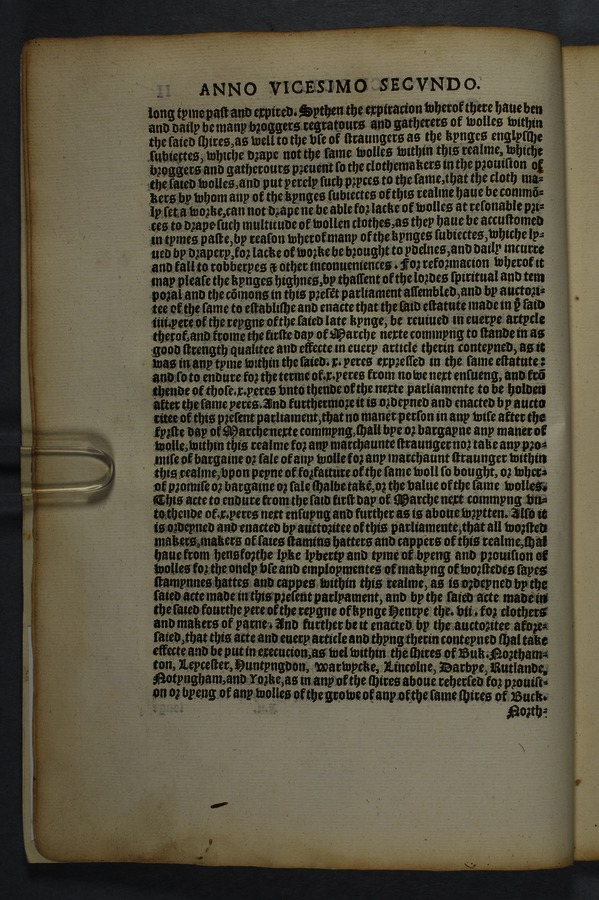 ANNO VICESIMO SECVNDO.
long tyme past and expired. Sythen the expiracion wherof there haue ben
and daily be many broggers regratours and gatherers of wolles within
the saied shires, as well to the vse of straungers as the kynges englysshe
subiectes, whiche drape not the same wolles within this realme, whiche
broggers and gatherours preuent so the clothemakers in the prouision of
the saied wolles, and put yerely such pryces to the same, that the cloth ma-
kers by whom any of the kynges subiectes of this realme haue be commõ-
ly set a worke, can not drape ne be able for lacke of wolles at resonable pri-
ces to drape such multitude of wollen clothes, as they haue be accustomed
in tymes paste, by reason wherof many of the kynges subiectes, whiche ly-
ued by drapery, for lacke of worke be brought to ydelnes, and daily incurre
and fall to robberyes & other inconueniences. For reformacion wherof it
may please the kynges highnes, by thassent of the lordes spiritual and tem
poral and the cõmons in this presẽt parliament assembled, and by auctori-
tee of the same to establishe and enacte that the said estatute made in ẏ said
iiii.yere of the reygne of the saied late kynge, be reuiued in euerye artycle
therof, and frome the firste day of Marche nexte commyng to stande in as
good strength qualitee and effecte in euery article therin conteyned, as it
was in any tyme within the saied. x. yeres expressed in the same estatute:
and so to endure for the terme of.x.yeres from nowe next ensueng, and frõ
thende of those.x.yeres vnto thende of the nexte parliamente to be holden
after the same yeres. And furthermore it is ordeyned and enacted by aucto
ritee of this present parliament, that no maner person in any wise after the
fyrste day of Marche nexte commyng, shall bye or bargayne any maner of
wolle, within this realme for any marchaunte straunger nor take any pro-
mise of bargaine or sale of any wolle for any marchaunt straunger within
this realme, vpon peyne of forfaiture of the same woll so bought, or wher-
of promise or bargaine or sale shalbe takẽ, or the value of the same wolles.
This acte to endure from the said first day of Marche next commyng vn-
to thende of.x.yeres next ensuyng and further as is aboue wrytten. Also it
is ordeyned and enacted by auctoritee of this parliamente, that all worsted
makers, makers of saies stamins hatters and cappers of this realme, shal
haue from hensforthe lyke lyberty and tyme of byeng and prouision of
wolles for the onely vse and employmentes of makyng of worstedes sayes
stampnnes hattes and cappes within this realme, as is ordeyned by the
saied acte made in this present parlyament, and by the saied acte made in
the saied fourthe yere of the reygne of kynge Henrye the. vii. for clothers
and makers of yarne. And further be it enacted by the auctoritee afore-
saied, that this acte and euery article and thyng therin conteyned shal take
effecte and be put in execucion, as wel within the shires of Buk. Northam-
ton, Leycester, Huntyngdon, Warwycke, Lincolne, Darbye, Rutlande,
Notyngham, and Yorke, as in any of the shires aboue rehersed for prouisi-
on or byeng of any wolles of the growe of any of the same shires of Buck.
North-